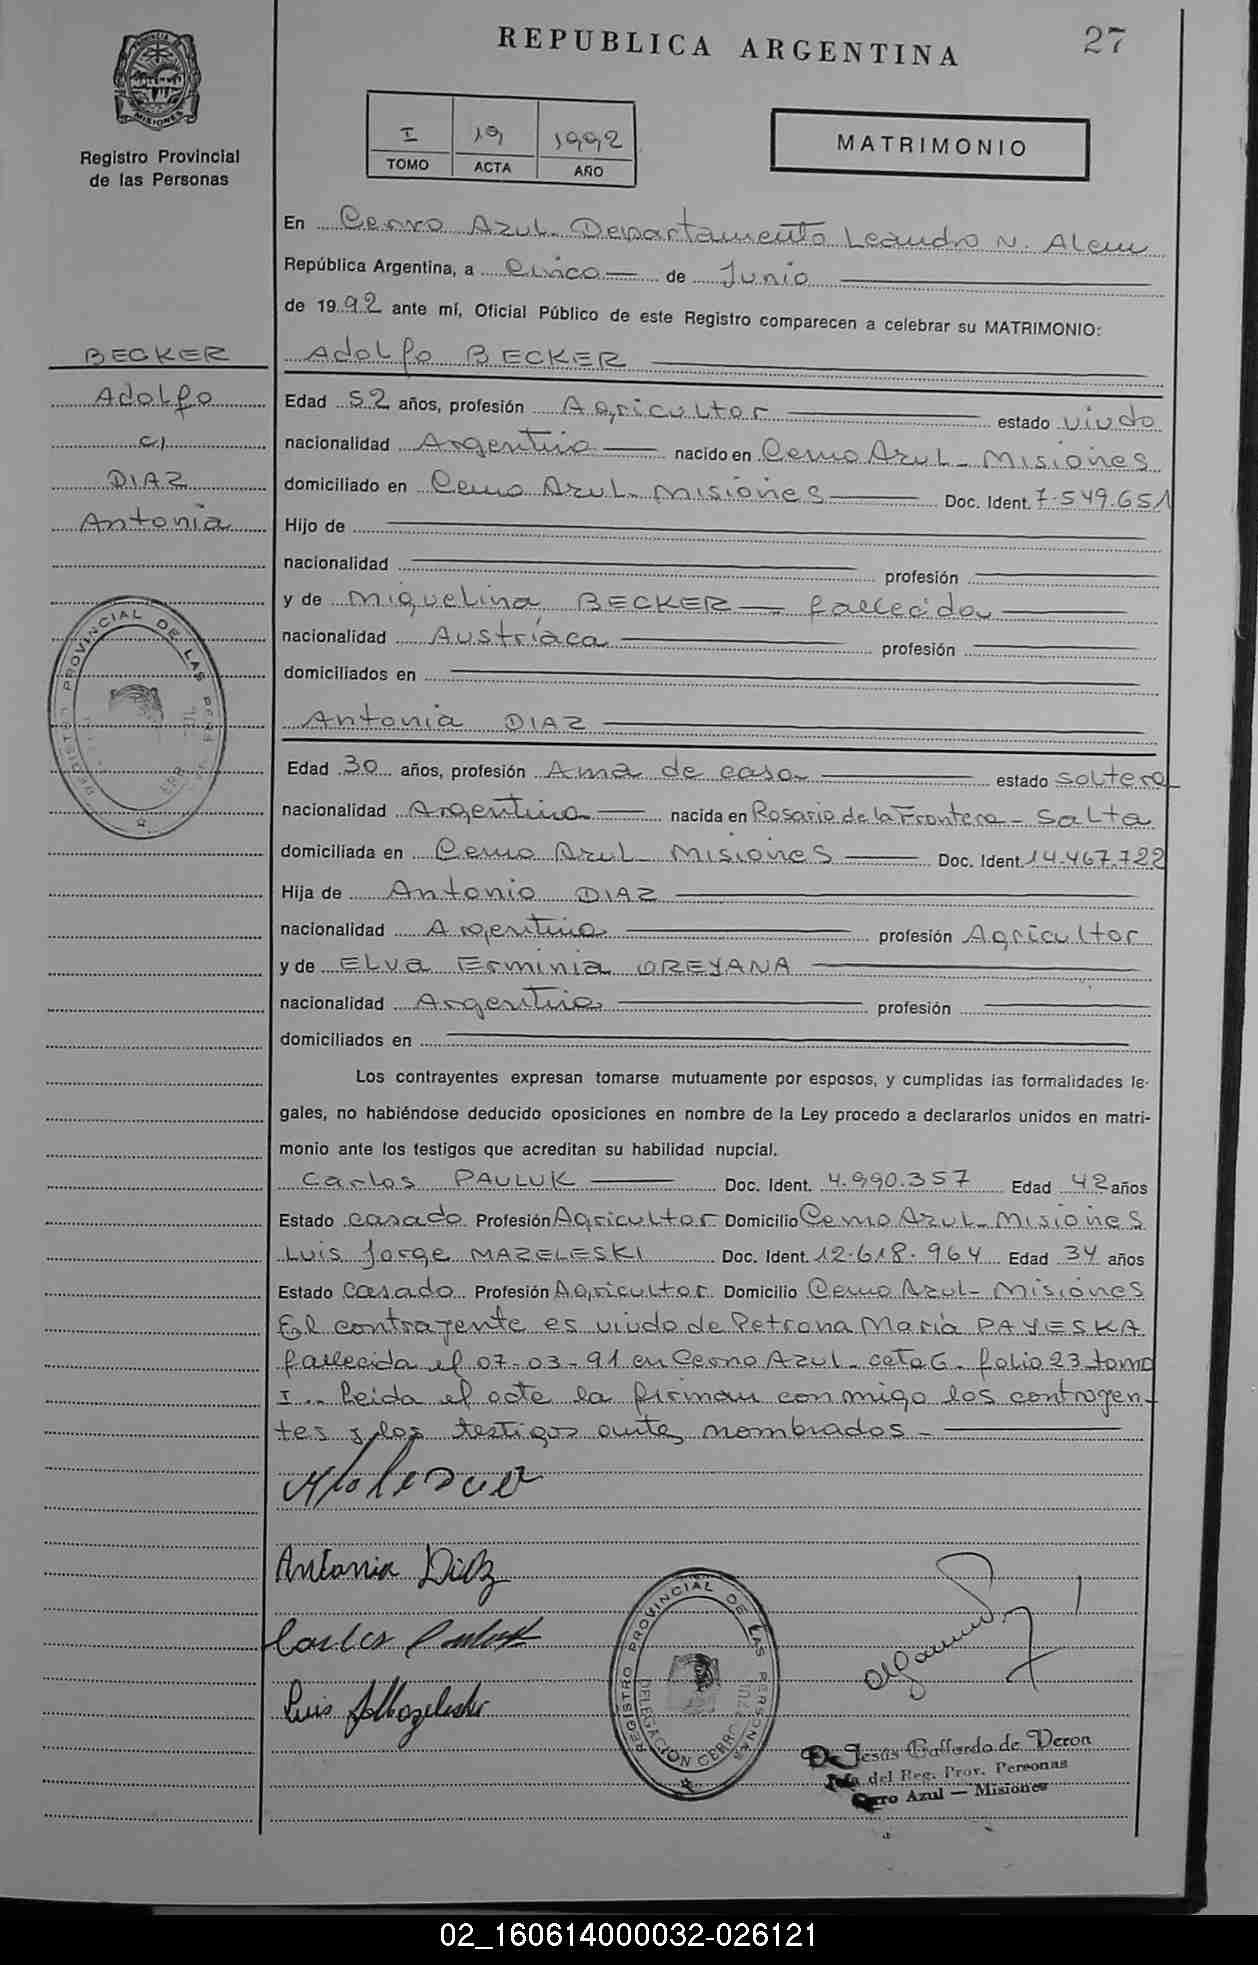 REPUBLICA ARGENTINA
27
PROVINCIA DE MISIONES
Registro Provincial
de las Personas
I 19 1992
TOMO ACTA AÑO
MATRIMONIO
En Cerro Azul - Departamento Leandro N. Alem
República Argentina, a Cinco de Junio
de 1992 ante mí, Oficial Público de este Registro comparecen a celebrar su MATRIMONIO:
BECKER
Adolfo
c/
DIAZ
Antonia
Adolfo BECKER
Edad 52 años, profesión Agricultor estado viudo
nacionalidad Argentino nacido en Cerro Azul - Misiones
domiciliado en Cerro Azul - Misiones Doc. Ident. 7.549.651
Hijo de
nacionalidad profesión
y de Miguelina BECKER fallecida
nacionalidad Austríaca profesión
domiciliados en
Antonia DIAZ
Edad 30 años, profesión Ama de casa estado soltera
nacionalidad Argentina nacida en Rosario de la Frontera - Salta
domiciliada en Cerro Azul - Misiones Doc. Ident. 14.467.722
Hija de Antonio DIAZ
nacionalidad Argentino profesión Agricultor
y de Elva Erminia OREYANA
nacionalidad Argentina profesión
domiciliados en
Los contrayentes expresan tomarse mutuamente por esposos, y cumplidas las formalidades le-
gales, no habiéndose deducido oposiciones en nombre de la Ley procedo a declararlos unidos en matri-
monio ante los testigos que acreditan su habilidad nupcial.
Carlos PAULUK Doc. Ident. 4.990.357 Edad 42 años
Estado casado Profesión Agricultor Domicilio Cerro Azul - Misiones
Luis Jorge MAZELESKI Doc. Ident. 12.618.964 Edad 34 años
Estado casado Profesión Agricultor Domicilio Cerro Azul - Misiones
El contrayente es viudo de Petrona María PAYESKA
fallecida el 07-03-91 en Cerro Azul - acta 6 - folio 23 tomo
I.. Leida el acta la firman conmigo los contrayen-
tes y los testigos antes nombrados.-
Antonia Diaz
Carlos Pauluk
Luis J Mazeleski
REGISTRO PROVINCIAL DE LAS PERSONAS
DELEGACION CERRO AZUL
Jesús Gallardo de Veron
Jefa del Reg. Prov. Personas
Cerro Azul — Misiones
02_160614000032-026121